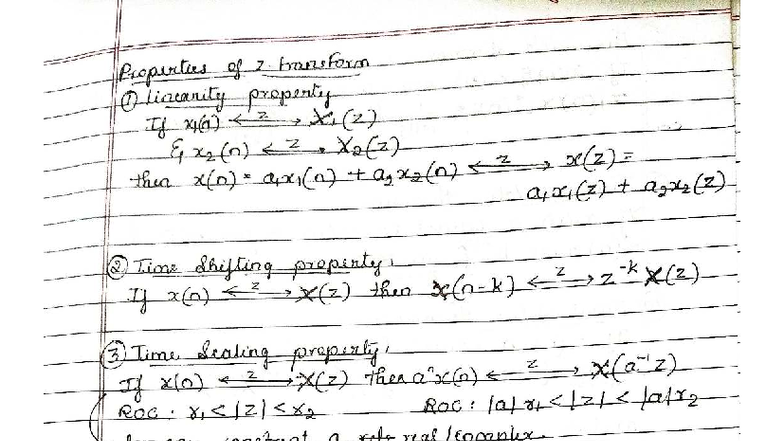 Properties of z transform
① Linearity property
If x₁(n) ←z→ X₁(z)
& x₂(n) ←z→ X₂(z)
then x(n) = a₁x₁(n) + a₂x₂(n) ←z→ x(z) =
a₁x₁(z) + a₂x₂(z)
② Time Shifting property.
If x(n) ←z→ X(z) then x(n-k) ←z→ z⁻ᵏ X(z)
③ Time Scaling property.
If x(n) ←z→ X(z) then aⁿx(n) ←z→ X(a⁻¹z)
ROC : r₁ < |z| < r₂ ROC : |a| r₁ < |z| < |a| r₂
constant a real/complex.